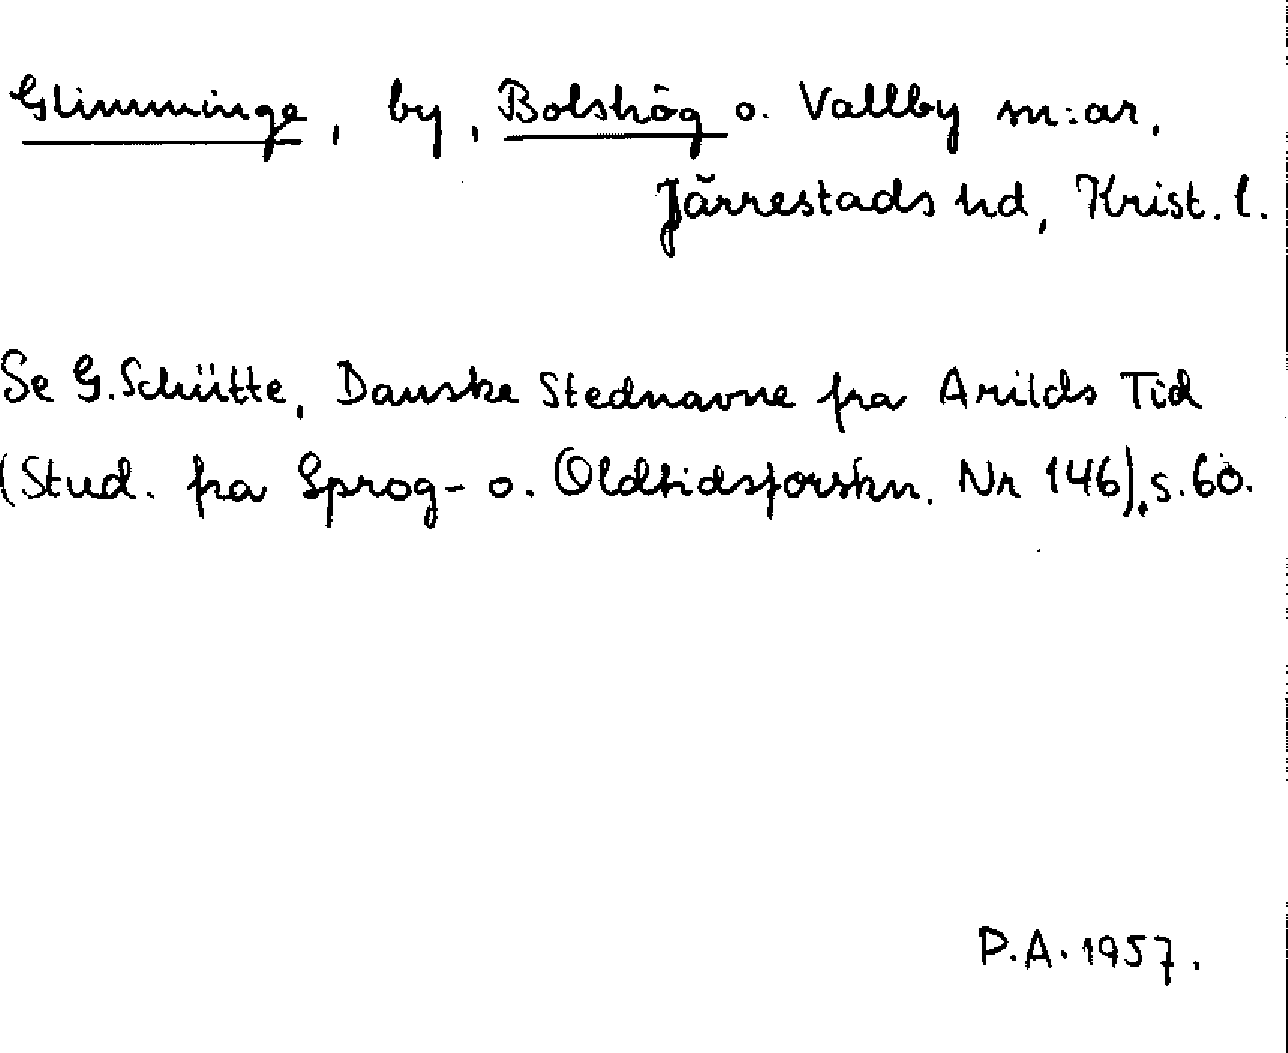 Glimminge, by, Bolshög o. Vallby sn:ar,
Järrestads hd, Krist. l.
Se G. Schütte, Danske Stednavne fra Arilds Tid
(Stud. fra Sprog- o. Oldtidsforskn. Nr 146), s. 60.
P.A. 1957.